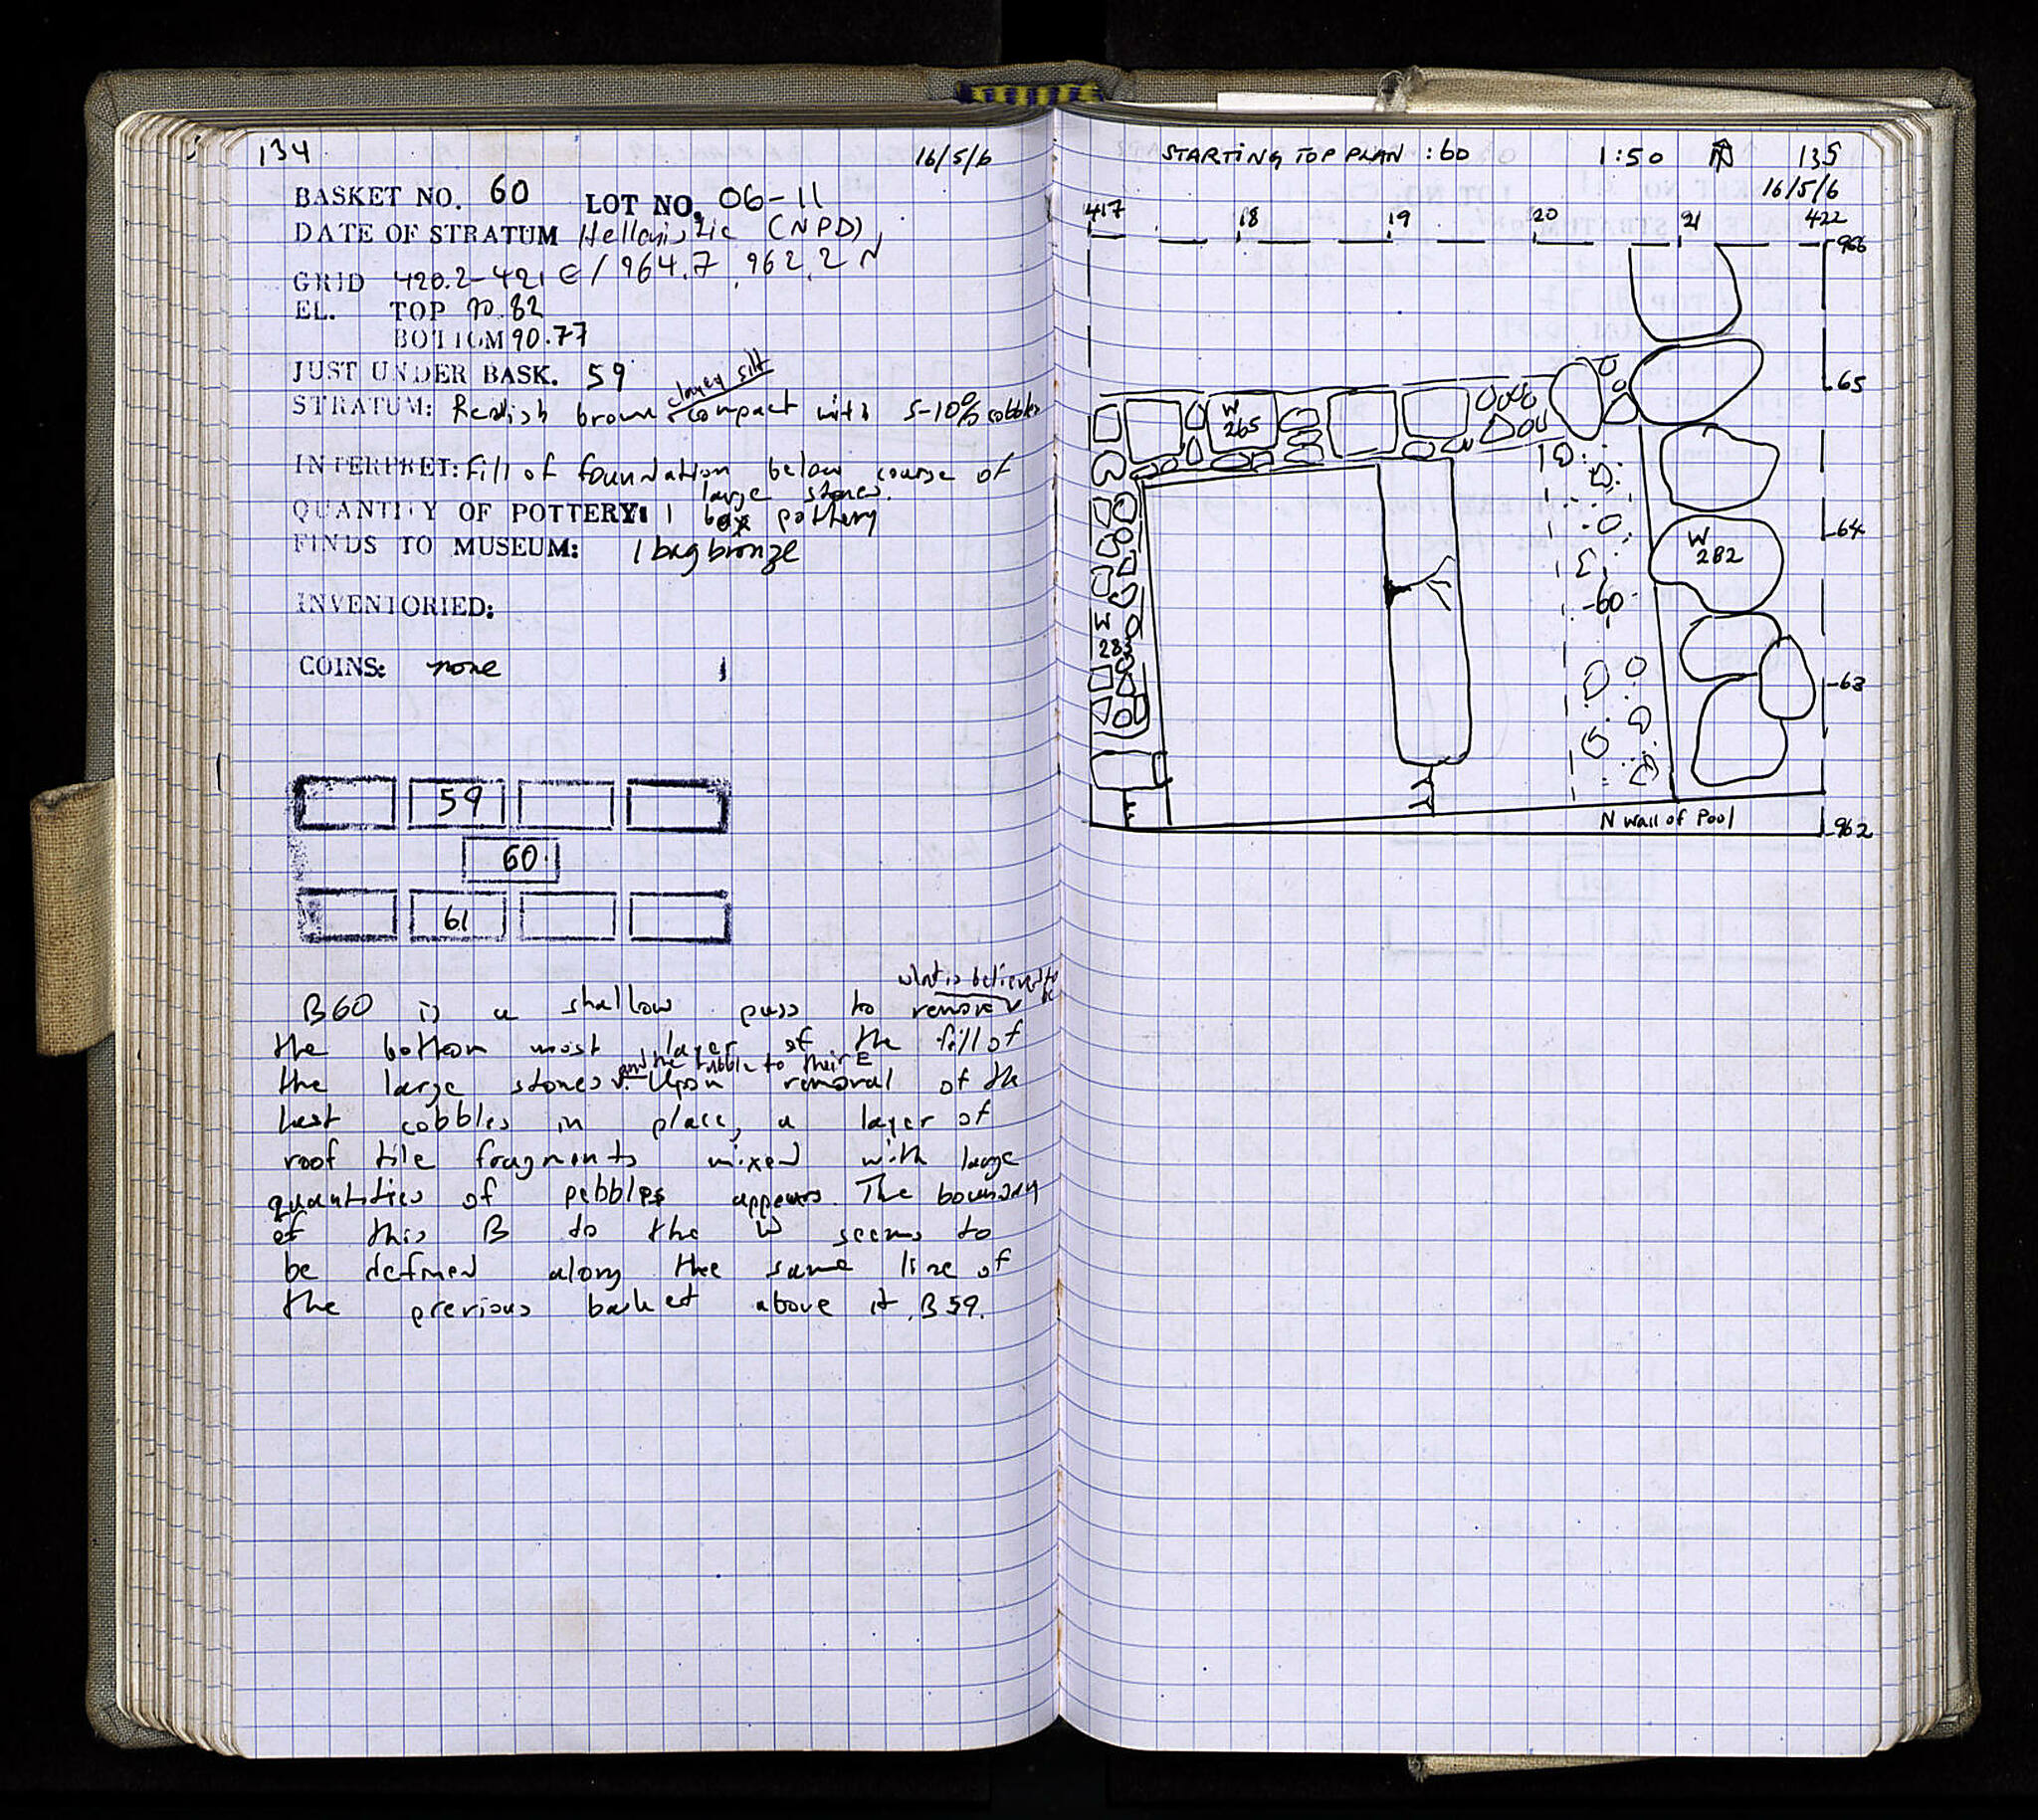 134
16/5/6
BASKET NO. 60 LOT NO. 06-11
DATE OF STRATUM Hellenistic (NPD)
GRID 420.2-421 E / 964.7, 962.2 N
EL. TOP 90.82
BOTTOM 90.77
JUST UNDER BASK. 59
clayey silt
STRATUM: Redish brown compact with 5-10% cobbles
INTERPRET: fill of foundation below course of
large stones.
QUANTITY OF POTTERY: 1 box pottery
FINDS TO MUSEUM: 1 bag bronze
INVENTORIED:
COINS: none
59
60
61
what is believed to be
B60 is a shallow pass to remove
the bottom most layer of the fill of
and the rubble to their E
the large stones. Upon removal of the
last cobbles in place, a layer of
roof tile fragments mixed with large
quantities of pebbles appears. The boundary
of this B to the W seems to
be defined along the same line of
the previous basket above it, B59.
STARTING TOP PLAN : 60 1:50 N 135
16/5/6
417 18 19 20 21 422
966
65
W
265
64
W
282
60
W
283
63
N Wall of Pool
962